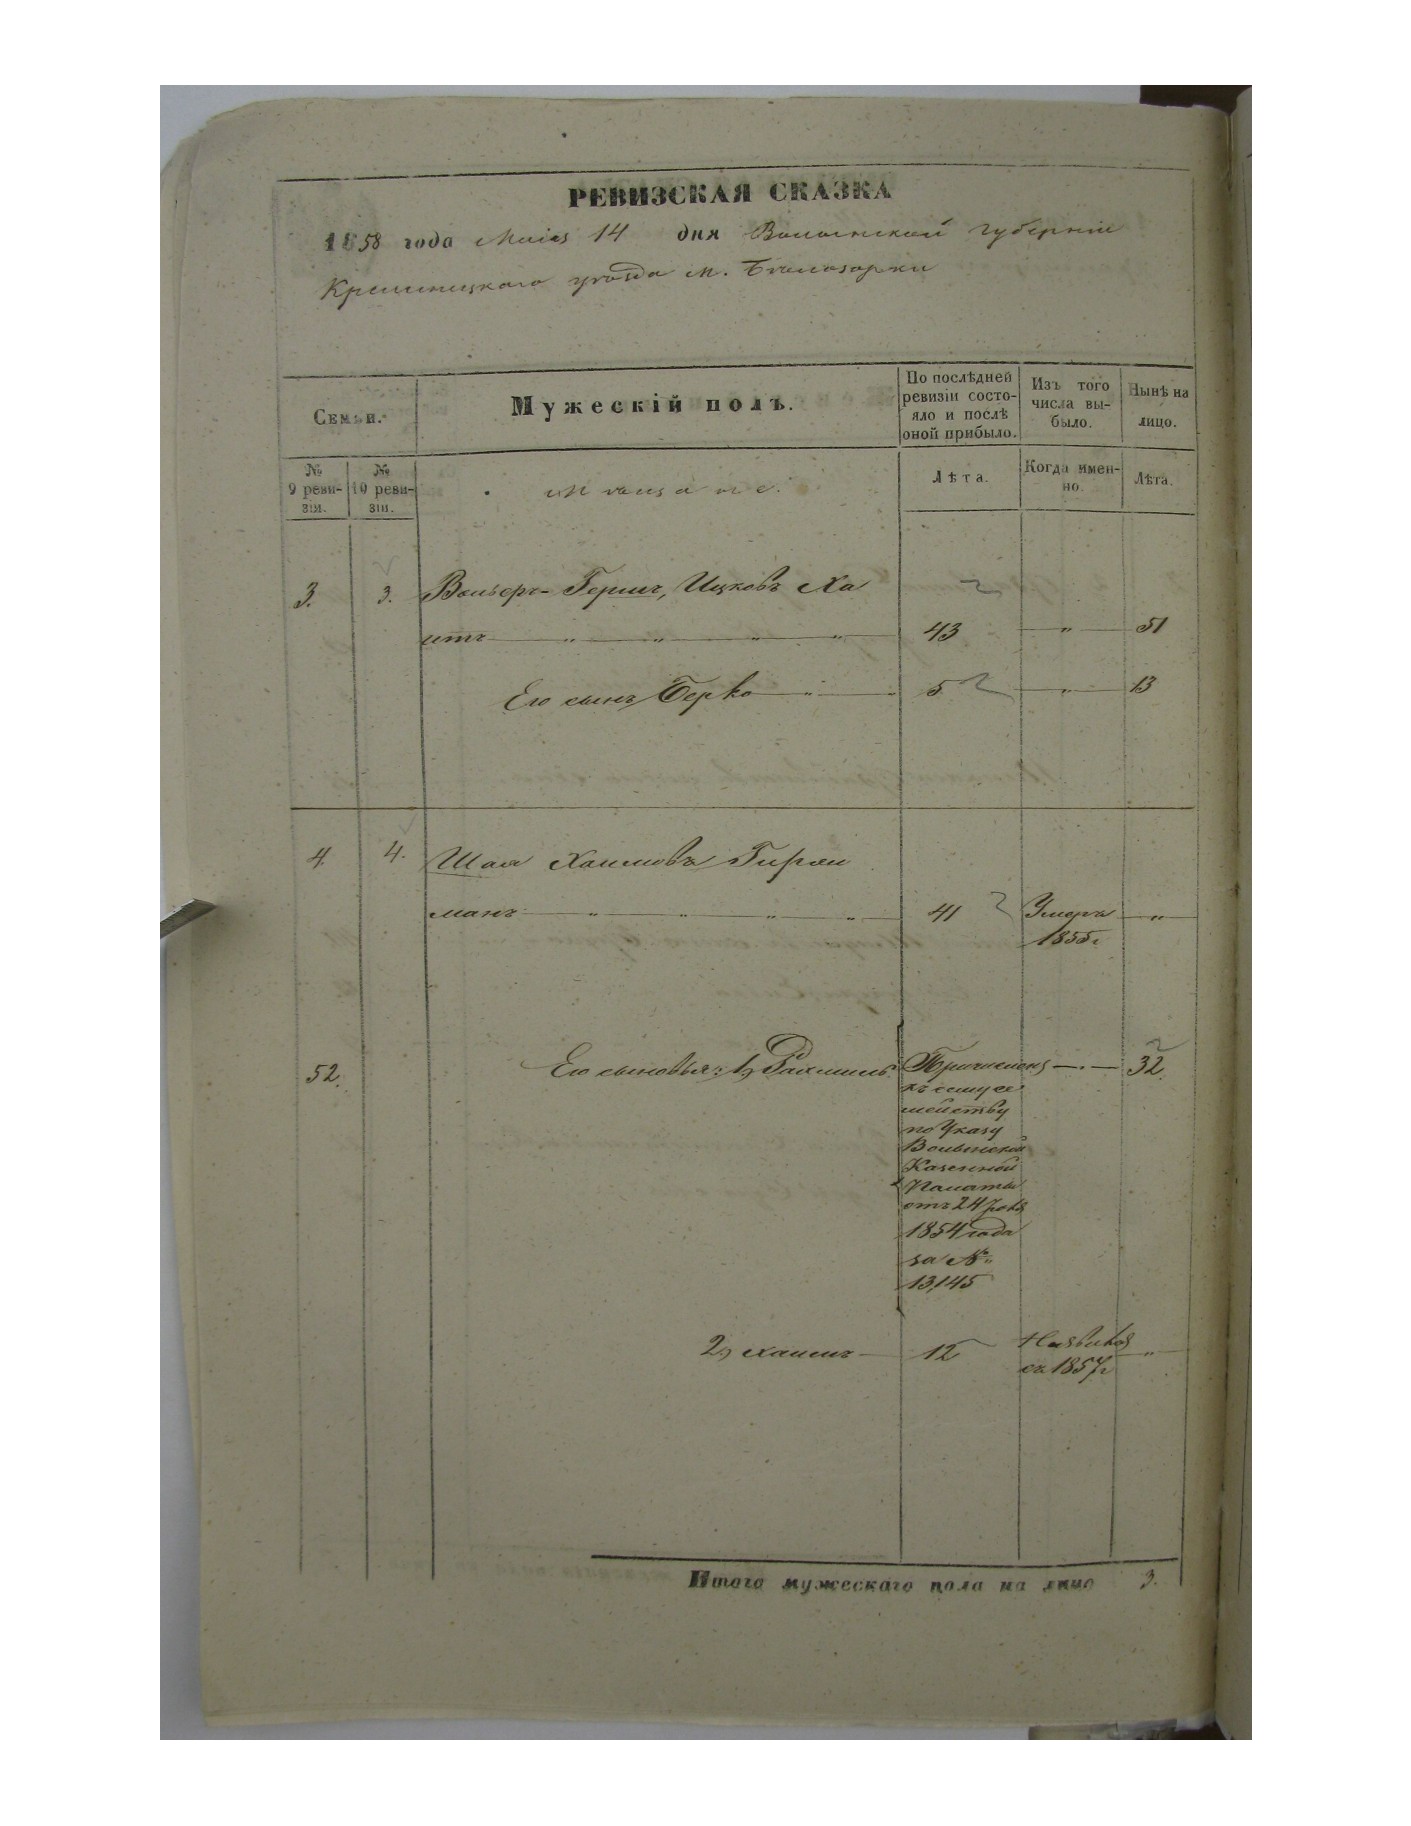 РЕВИЗСКАЯ СКАЗКА
1858 года Маія 14 дня Волынской губерніи
Кременецкаго уѣзда м. Бѣлозорки
Семьи.
Мужескій полъ.
По послѣдней ревизіи состояло и послѣ оной прибыло.
Изъ того числа выбыло.
Нынѣ на лицо.
№ 9 ревизіи.
№ 10 ревизіи.
Мѣщане.
Лѣта.
Когда именно.
Лѣта.
3. 3. Вольфъ-Гершъ, Ицковъ Ха
итъ — „ — „ — „ — „ — 43 — „ — 51
Его сынъ Берко — „ — „ 5 — „ — 13
4. 4. Шая Хаимовъ
манъ — „ — „ — „ — „ — 41 Умеръ — „ —
1855г.
52. Его сыновья: 1, Рахмиль Причисленъ — „ — 32.
къ сему се
мейству
по Указу
Волынской
Казенной
Палаты
отъ 24
1854 года
за №
13,145
2, Хаимъ — 12 „
съ 1857г
Итого мужескаго пола на лицо 3.